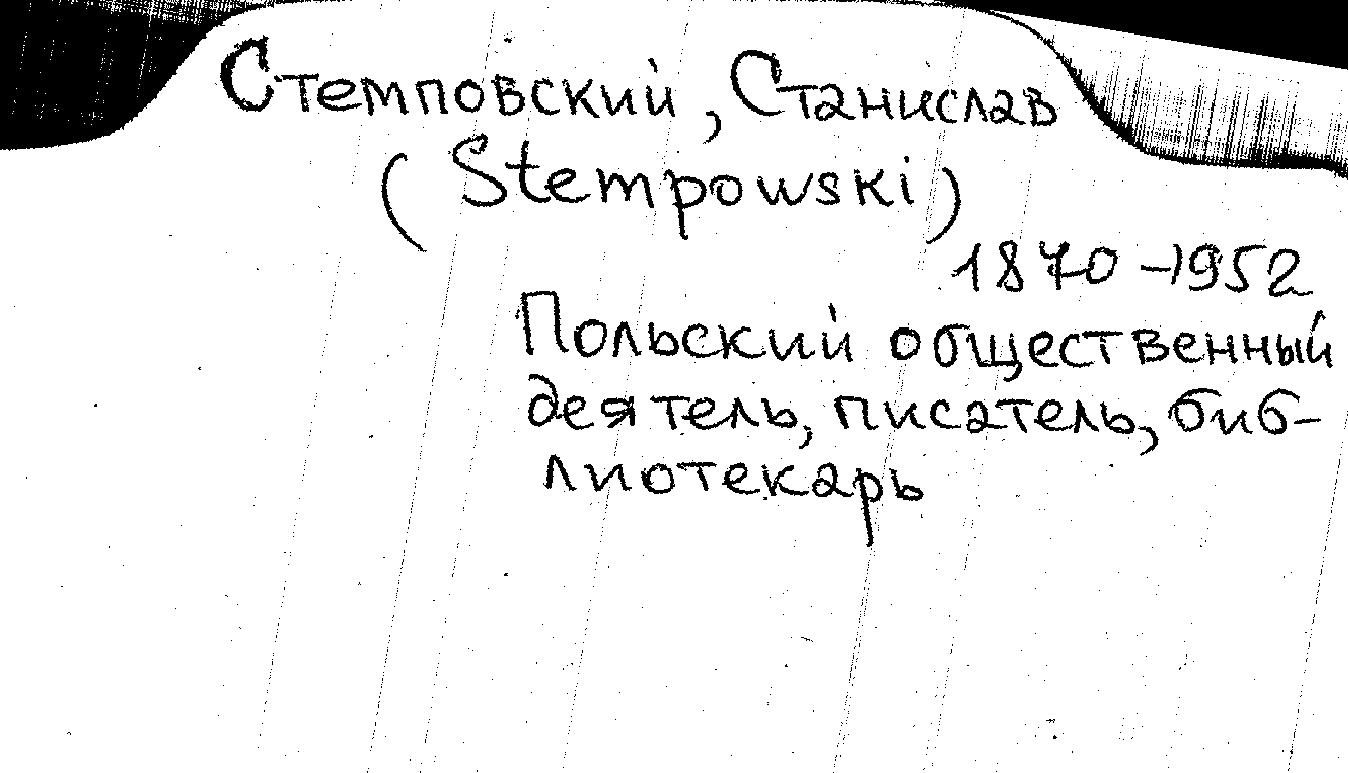 Стемповский, Станислав
(Stempowski)
1870-1952
Польский общественный
деятель, писатель, биб-
лиотекарь